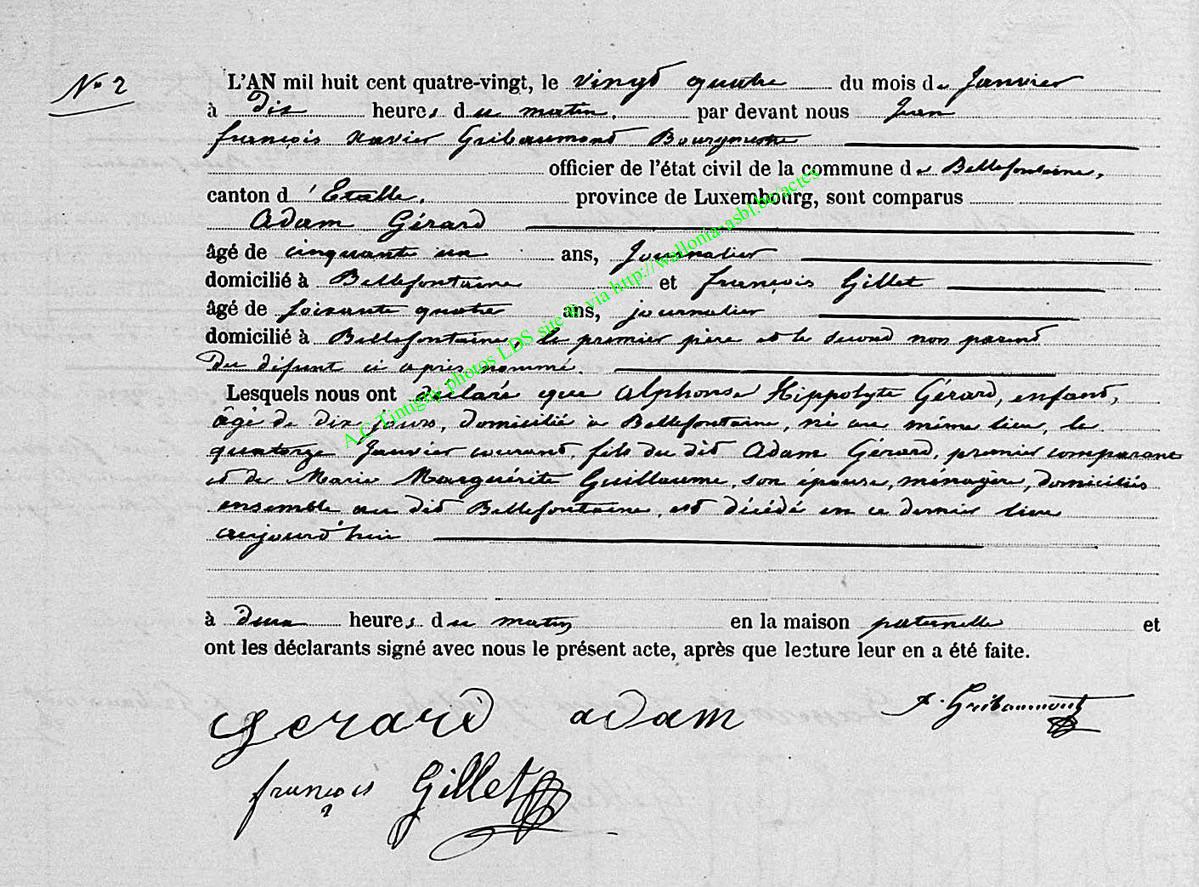 No 2
L'AN mil huit cent quatre-vingt, le vingt quatre du mois de Janvier
à dix heures du matin, par devant nous Jean
françois Xavier Gribaumont Bourgmestre
officier de l'état civil de la commune de Bellefontaine,
canton d'Etalle, province de Luxembourg, sont comparus
Adam Gérard
âgé de cinquante un ans, Journalier
domicilié à Bellefontaine et françois Gillet
âgé de soixante quatre ans, journalier
domicilié à Bellefontaine, le premier père et le second non parent
du défunt ci après nommé.
Lesquels nous ont déclaré que Alphonse Hippolyte Gérard, enfant,
âgé de dix jours, domicilié à Bellefontaine, né au même lieu, le
quatorze Janvier courant, fils du dit Adam Gérard, premier comparant
et de Marie Marguérite Guillaume, son épouse, ménagère, domiciliés
ensemble au dit Bellefontaine, est décédé en ce dernier lieu
aujourd'hui
à deux heures du matin en la maison paternelle et
ont les déclarants signé avec nous le présent acte, après que lecture leur en a été faite.
Gérard adam
françois Gillet
Gribaumont
A.C. Tintigny photos LDS sur via http://wallonia-asbl.be/actes